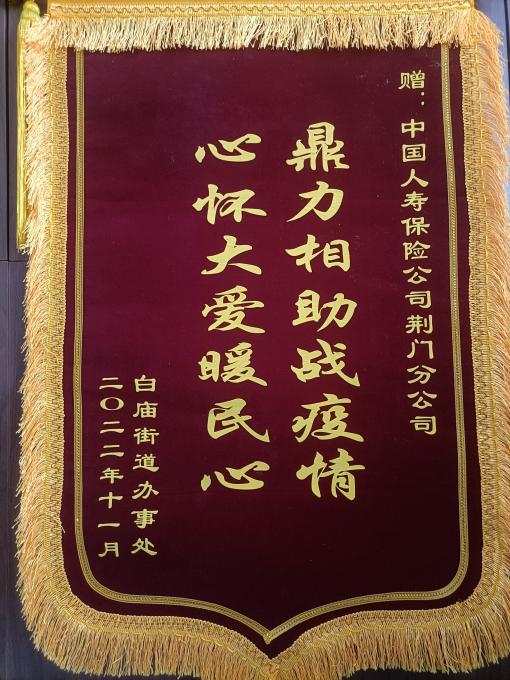 赠：中国人寿保险公司荆门分公司
鼎力相助战疫情
心怀大爱暖民心
白庙街道办事处
二〇二二年十一月